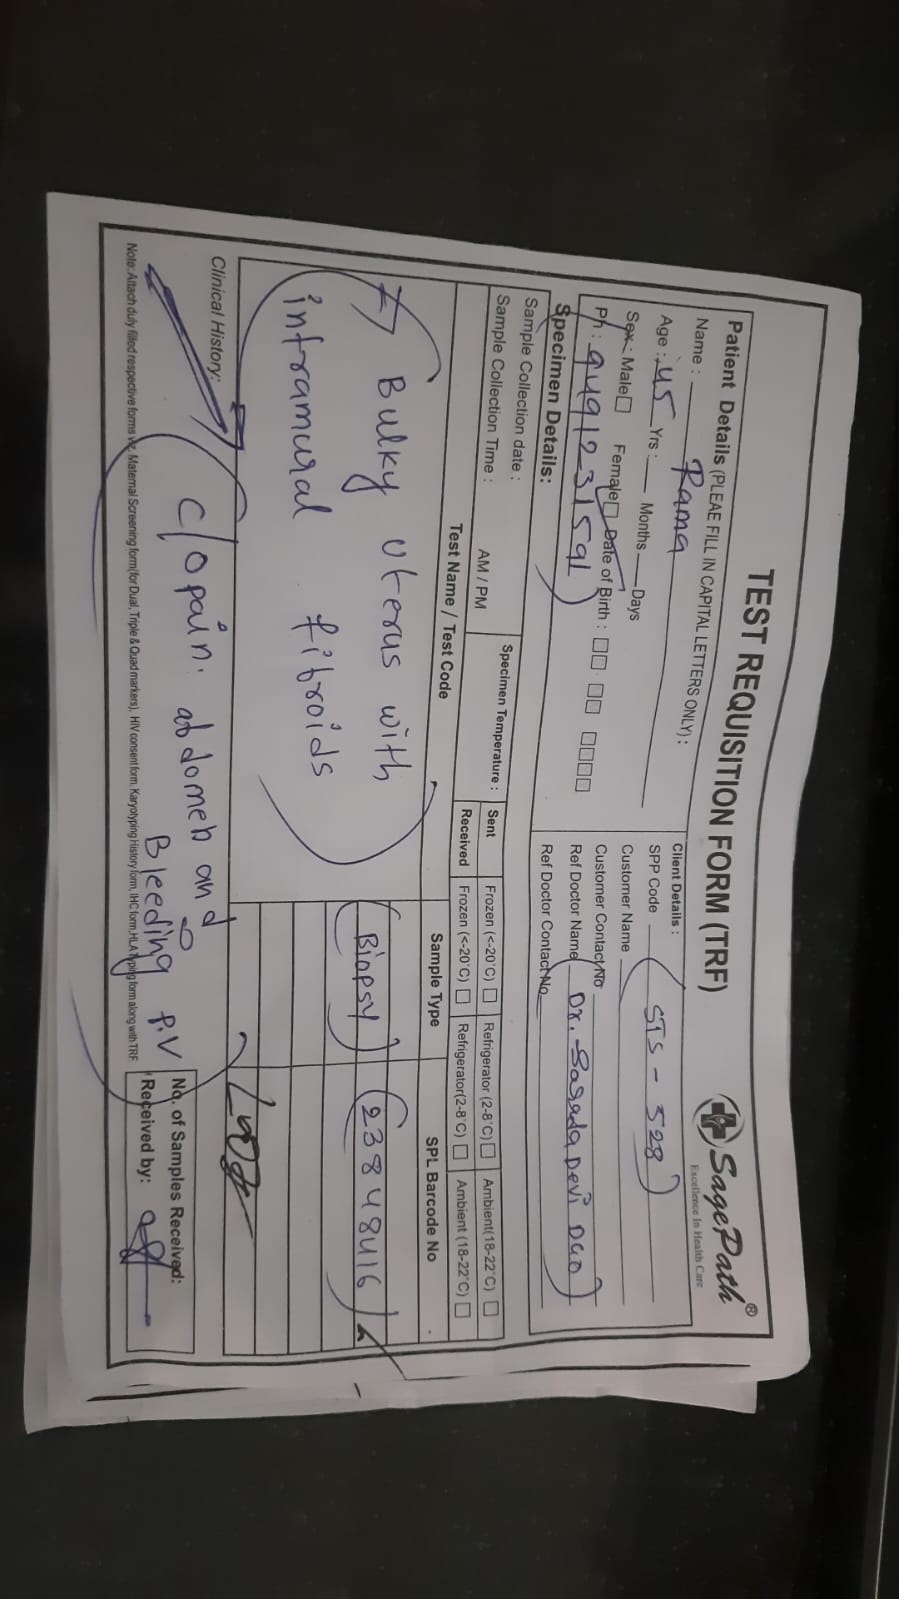 TEST REQUISITION FORM (TRF)
SagePath®
Excellence In Health Care
Patient Details (PLEAE FILL IN CAPITAL LETTERS ONLY) :
Name : Rama
Age : 45 Yrs : Months Days
Sex : Male Female Date of Birth :
Ph : 9491231591
Client Details :
SPP Code STS - 528
Customer Name
Customer Contact No
Ref Doctor Name Dr. Sarada Devi DGO
Ref Doctor Contact No
Specimen Details:
Sample Collection date :
Sample Collection Time : AM / PM
Specimen Temperature :
Sent Frozen (<-20°C) Refrigerator (2-8°C) Ambient(18-22°C)
Received Frozen (<-20°C) Refrigerator(2-8°C) Ambient (18-22°C)
Test Name / Test Code Sample Type SPL Barcode No
Bulky Uterus with
intramural fibroids
Biopsy 23848416
Clinical History:
C/O pain. abdomen and
Bleeding P.V
No. of Samples Received:
Received by:
Note: Attach duly filled respective forms viz. Maternal Screening form(for Dual, Triple & Quad markers), HIV consent form, Karyotyping History form, IHC form, HLA Typing form along with TRF